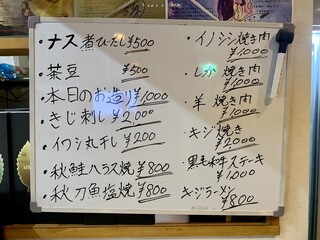 ・ナス煮ひたし ¥500
茶豆 ¥500
本日のお造り ¥1,000
きじ刺し ¥2,000
イワシ丸干し ¥200
秋鮭ハラス焼 ¥800
秋刀魚塩焼 ¥800
・イノシシ焼き肉 ¥1,000
・しか 焼き肉 ¥1,000
・羊 焼き肉 ¥1,000
・キジ焼き ¥2,000
・黒毛和牛ステーキ ¥1,000
・キジラーメン ¥800